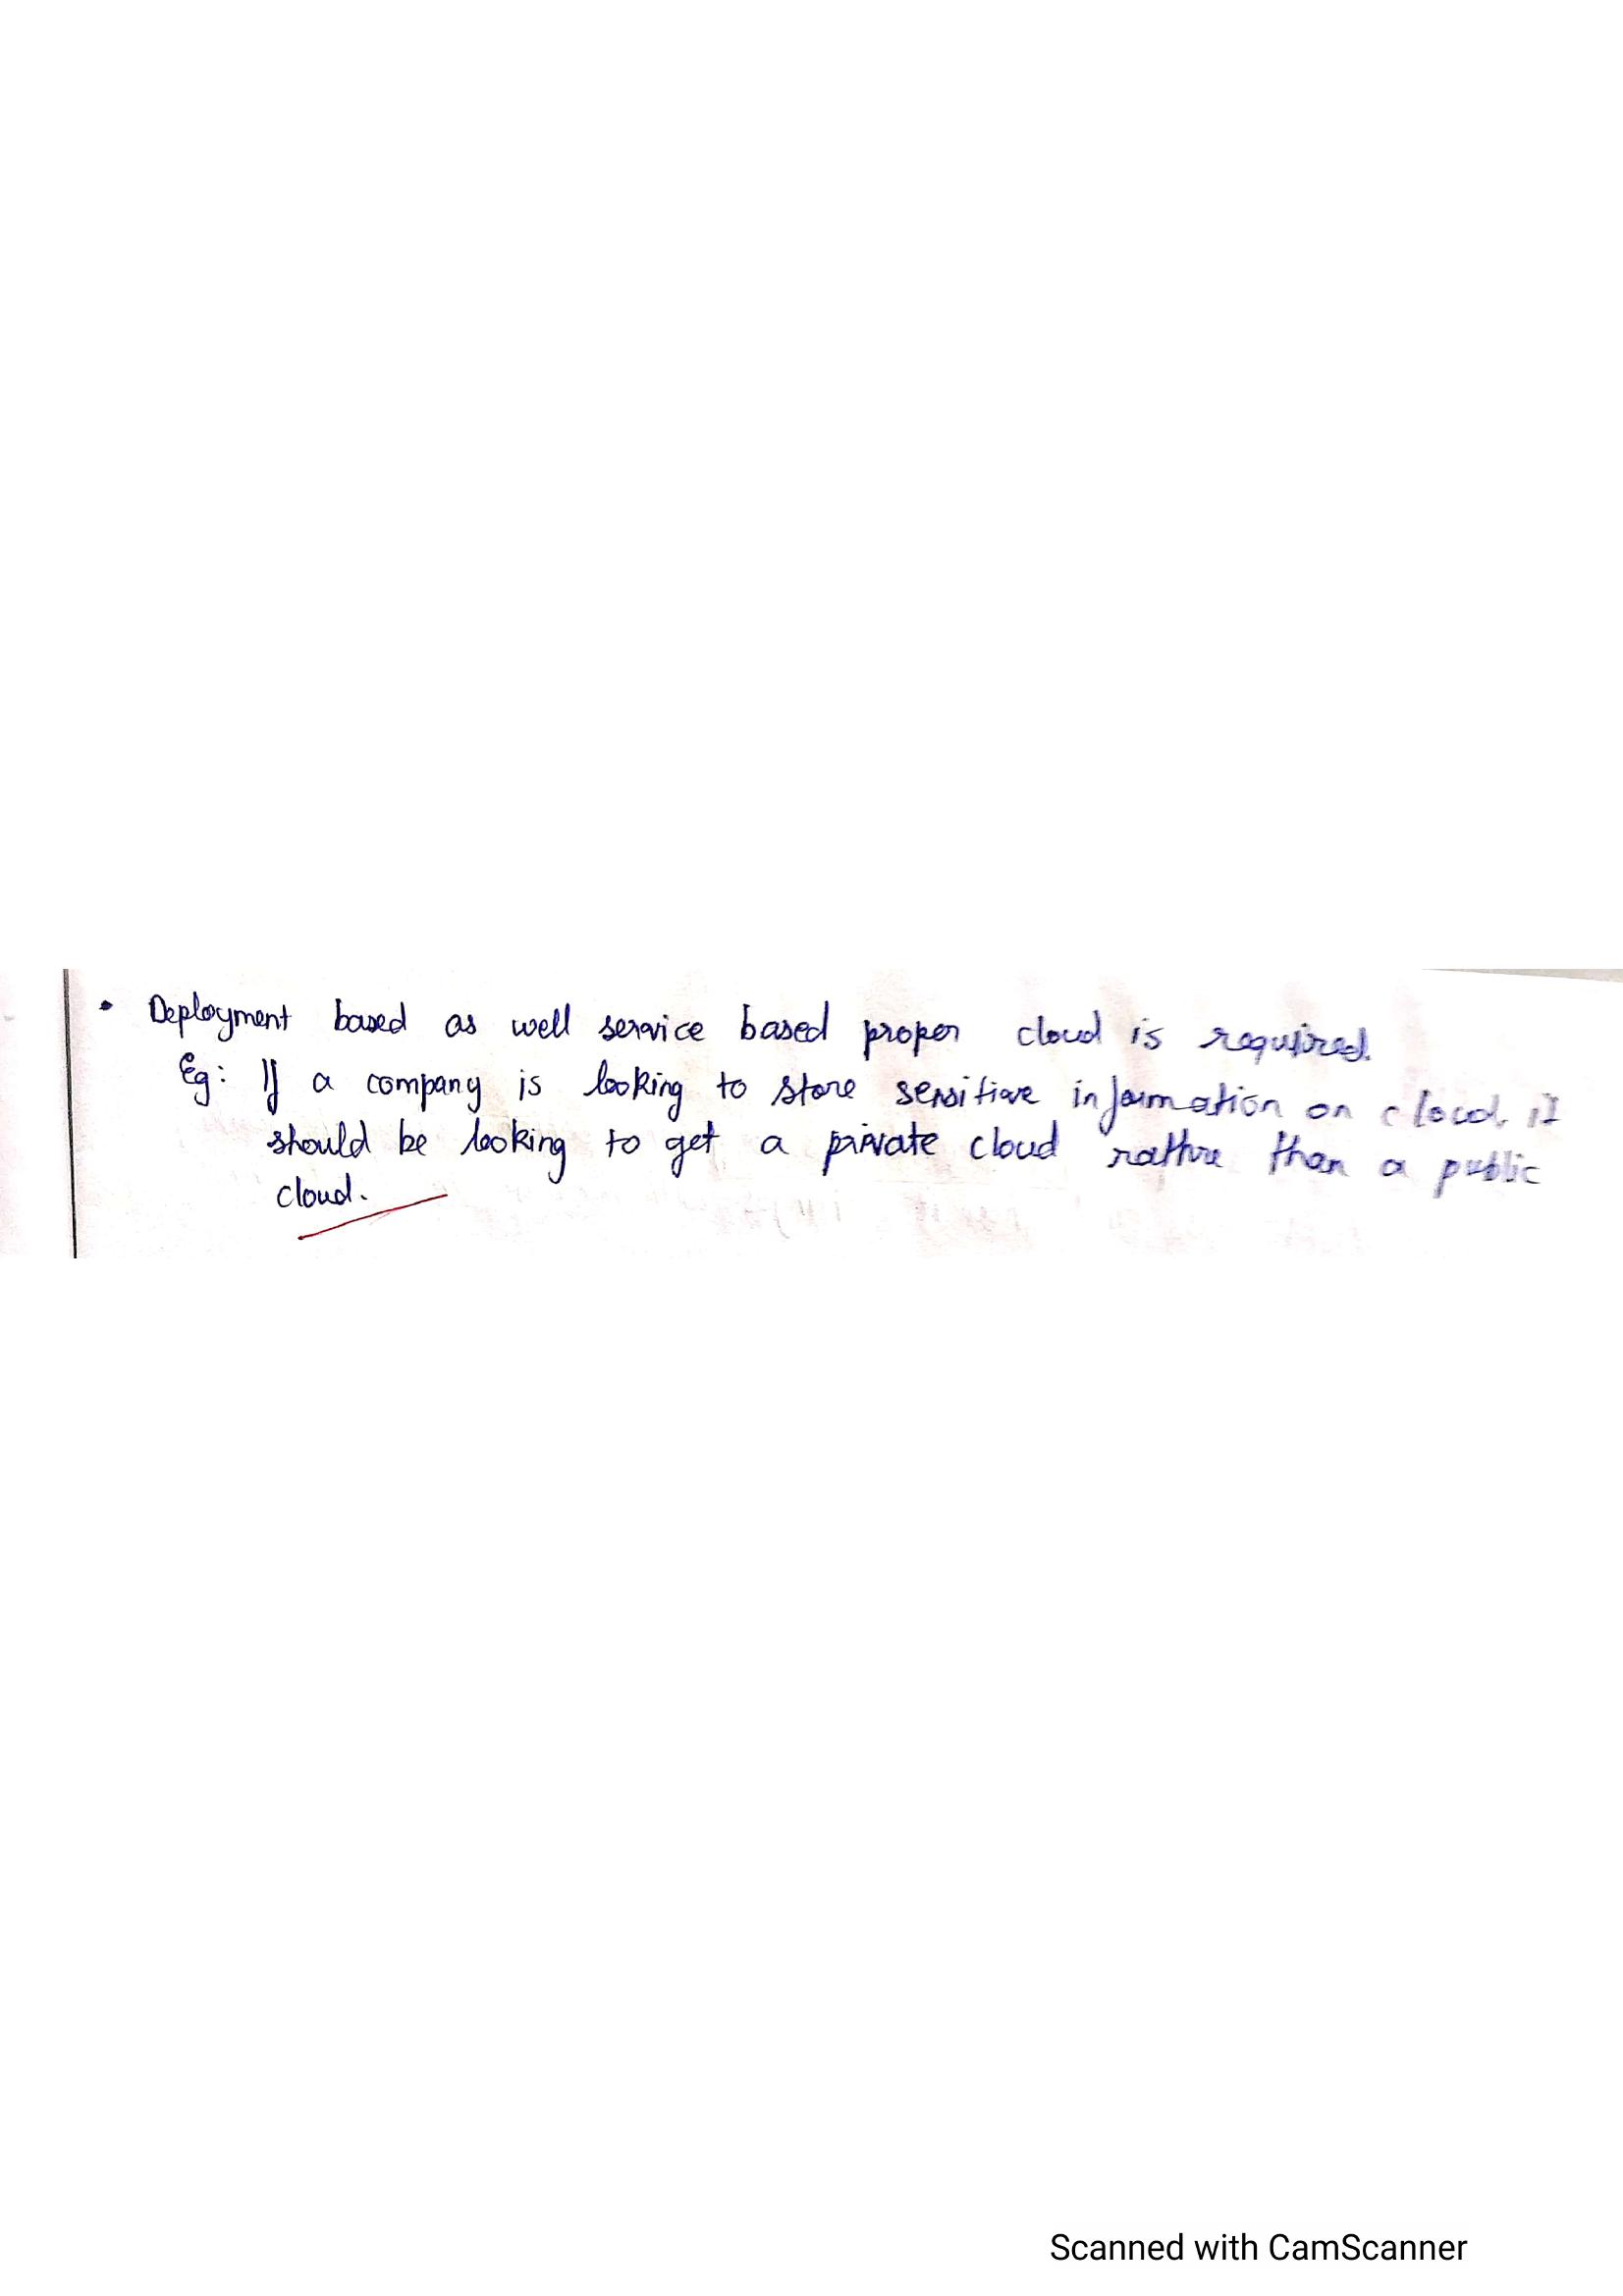 • Deployment based as well service based proper cloud is required.
Eg: If a company is looking to store sensitive information on cloud, it
should be looking to get a private cloud rather than a public
cloud.
Scanned with CamScanner